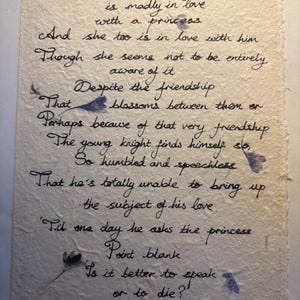 is madly in love
with a princess
And she too is in love with him
Though she seems not to be entirely
aware of it
Despite the friendship
That blossoms between them or
Perhaps because of that very friendship
The young knight finds himself so,
So humbled and speechless
That he's totally unable to bring up
the subject of his love
'Til one day he asks the princess
Point blank
'Is it better to speak
or to die?'